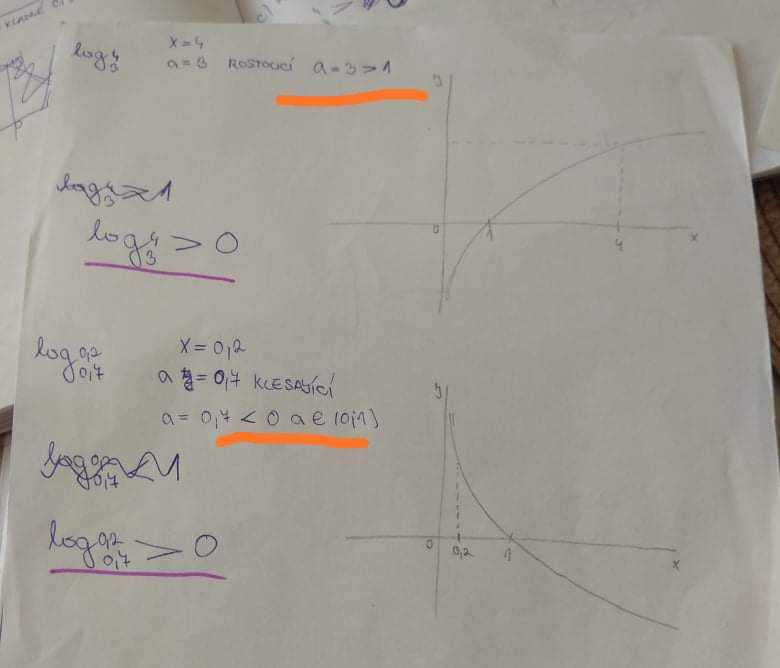 KLADNÉ
c)
log₃4 x=4
a=3 ROSTOUCÍ a=3>1
y
0 1 4 x
log₃4>1
log₃4 > 0
log₀,₇0,2 x=0,2
a y=0,7 KLESAJÍCÍ
a=0,7<0 a∈(0,1)
y
0 0,2 1 x
log₀,₇0,2<1
log₀,₇0,2 > 0